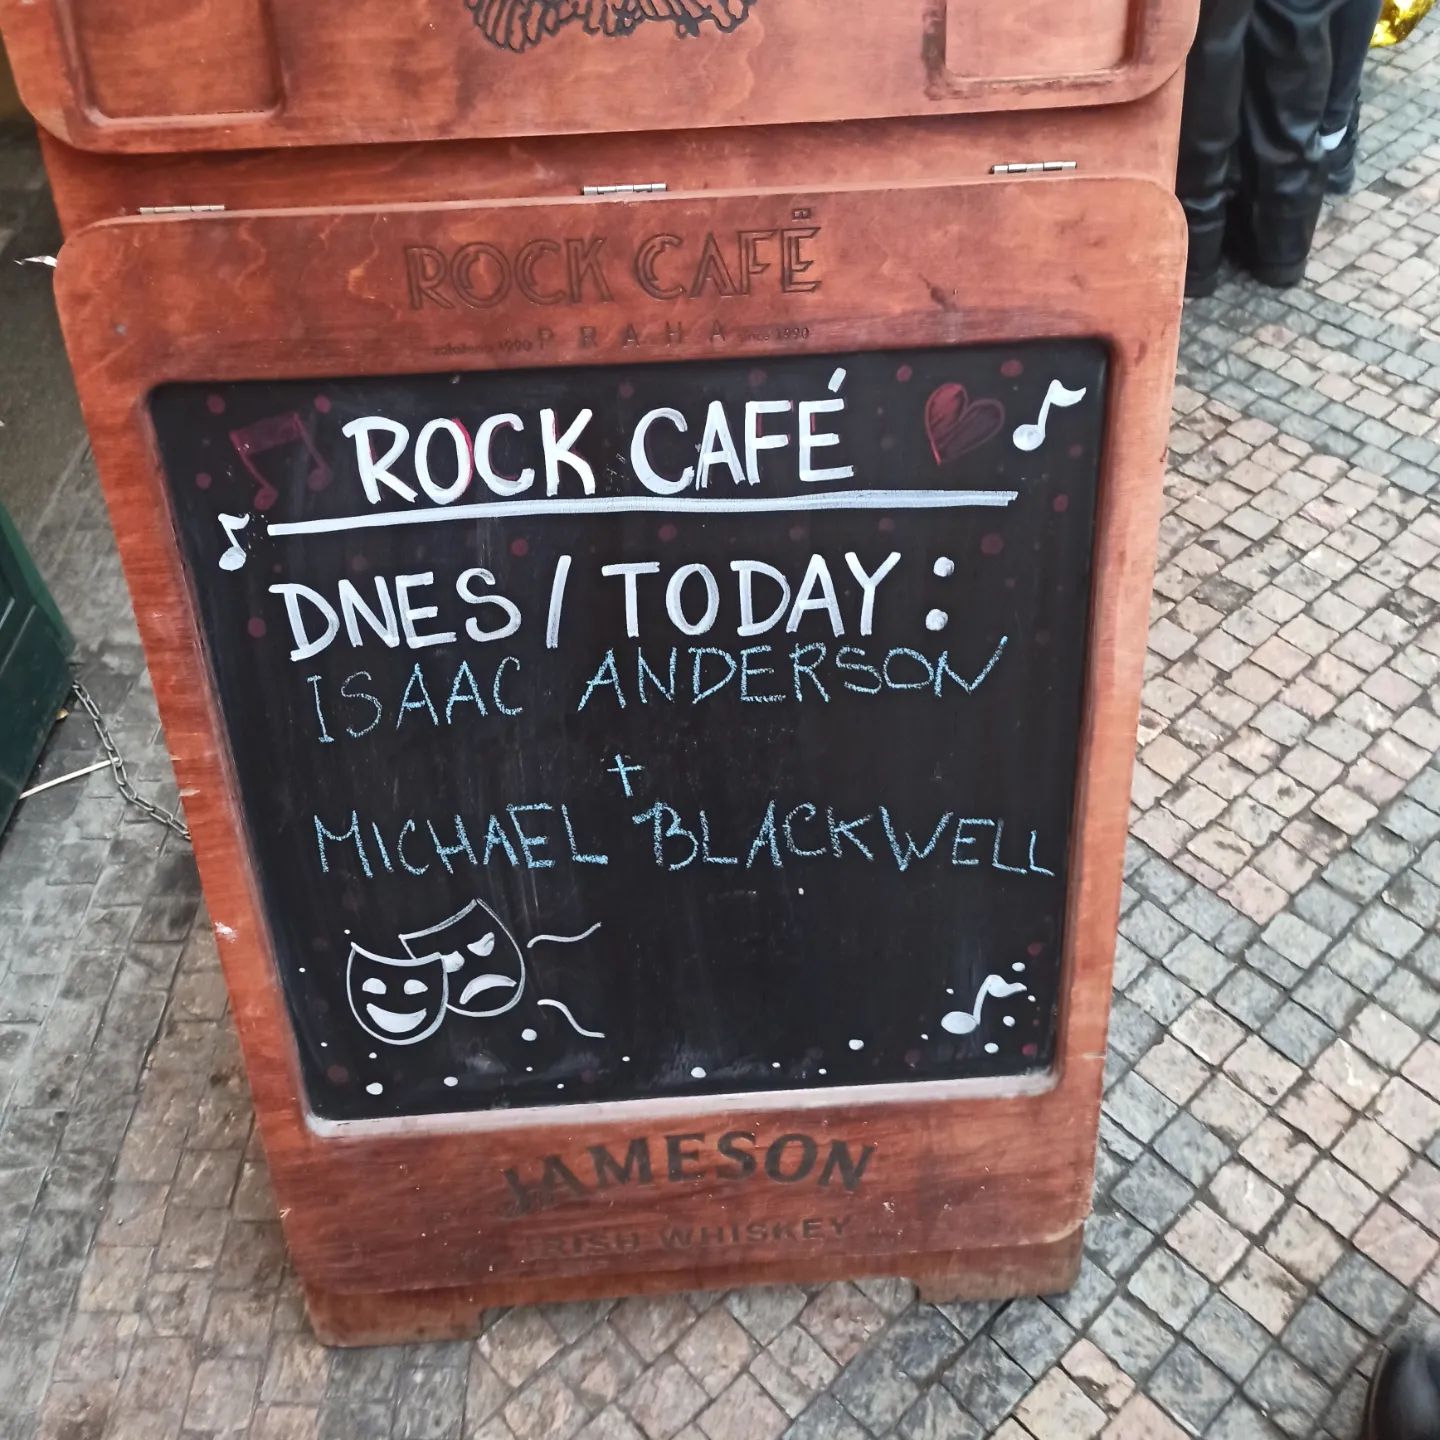 ROCK CAFÉ
založeno 1990 PRAHA since 1990
ROCK CAFÉ
DNES / TODAY :
ISAAC ANDERSON
+
MICHAEL BLACKWELL
JAMESON
IRISH WHISKEY